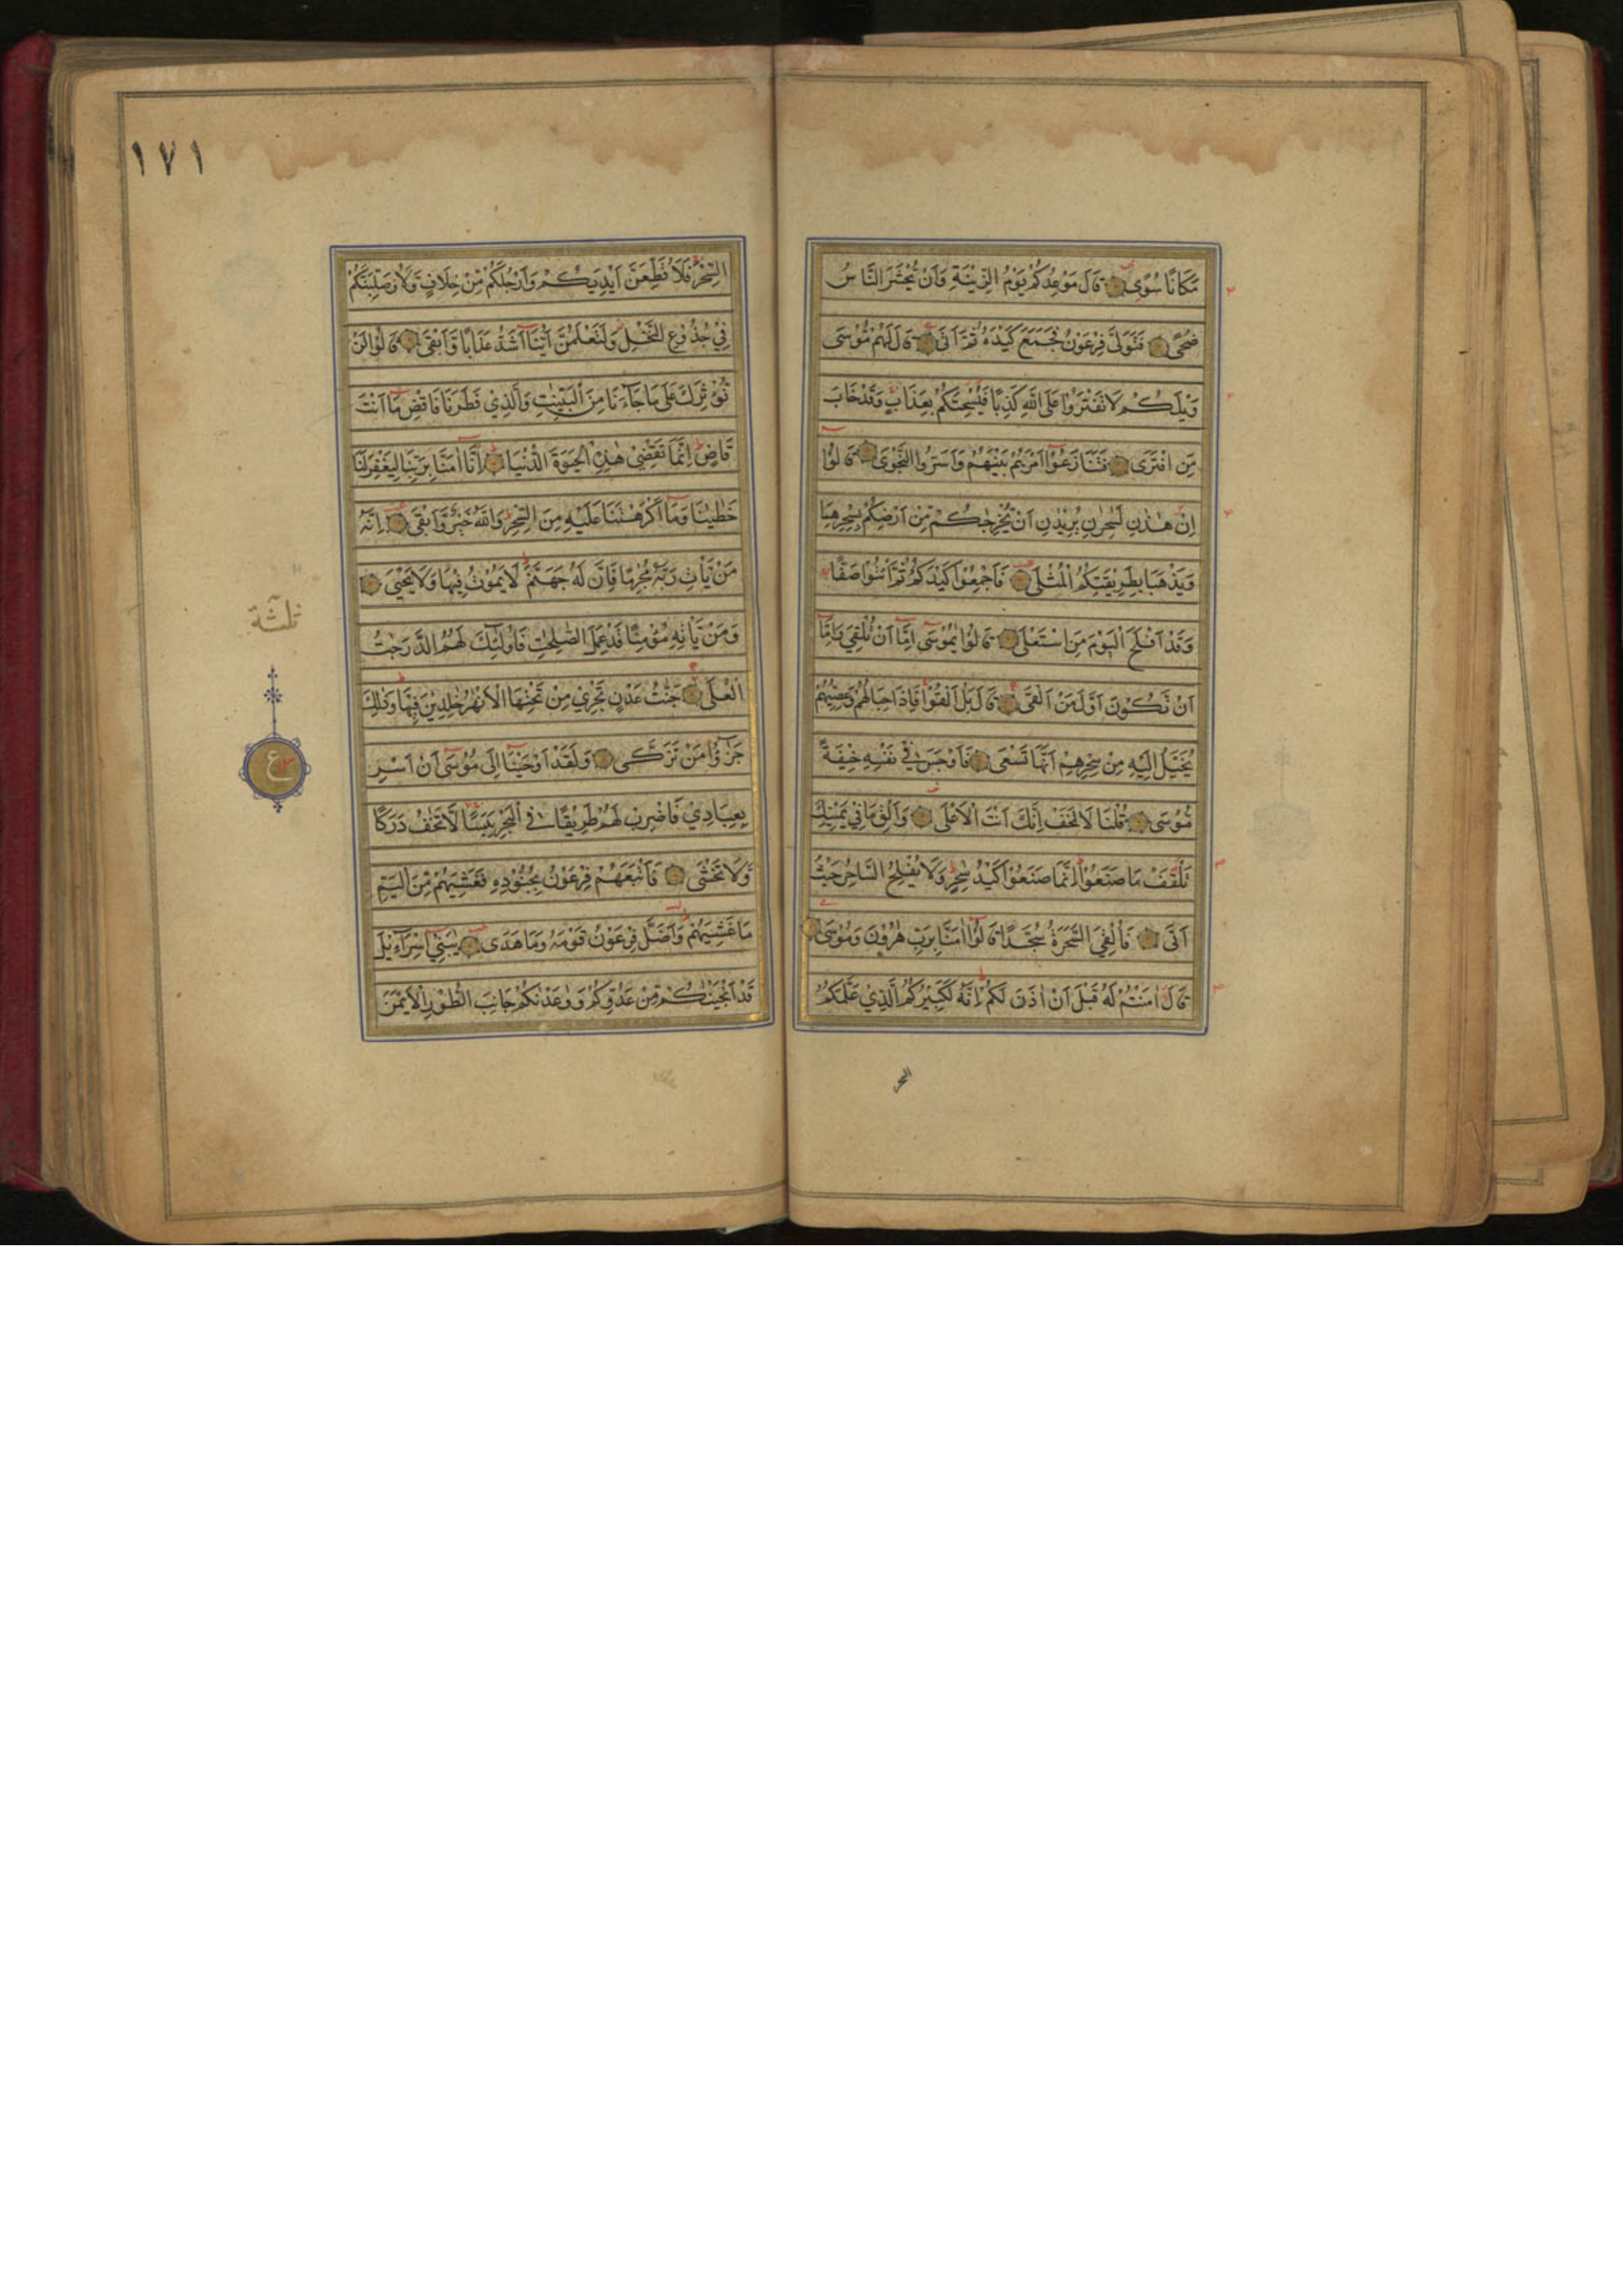 مَكَانًا سُوًى قَالَ مَوْعِدُكُمْ يَوْمُ الزِّيْنَةِ وَاَنْ يُّحْشَرَ النَّاسُ
ضُحًى فَتَوَلّٰى فِرْعَوْنُ فَجَمَعَ كَيْدَهٗ ثُمَّ اَتٰى قَالَ لَهُمْ مُّوْسٰى
وَيْلَكُمْ لَا تَفْتَرُوْا عَلَى اللّٰهِ كَذِبًا فَيُسْحِتَكُمْ بِعَذَابٍ وَقَدْ خَابَ
مَنِ افْتَرٰى فَتَنَازَعُوْا اَمْرَهُمْ بَيْنَهُمْ وَاَسَرُّوا النَّجْوٰى قَالُوْا
اِنْ هٰذٰنِ لَسٰحِرٰنِ يُرِيْدٰنِ اَنْ يُّخْرِجٰكُمْ مِّنْ اَرْضِكُمْ بِسِحْرِهِمَا
وَيَذْهَبَا بِطَرِيْقَتِكُمُ الْمُثْلٰى فَاَجْمِعُوْا كَيْدَكُمْ ثُمَّ ائْتُوْا صَفًّا
وَقَدْ اَفْلَحَ الْيَوْمَ مَنِ اسْتَعْلٰى قَالُوْا يٰمُوْسٰى اِمَّا اَنْ تُلْقِيَ وَاِمَّا
اَنْ نَّكُوْنَ اَوَّلَ مَنْ اَلْقٰى قَالَ بَلْ اَلْقُوْا فَاِذَا حِبَالُهُمْ وَعِصِيُّهُمْ
يُخَيَّلُ اِلَيْهِ مِنْ سِحْرِهِمْ اَنَّهَا تَسْعٰى فَاَوْجَسَ فِيْ نَفْسِهٖ خِيْفَةً
مُّوْسٰى قُلْنَا لَا تَخَفْ اِنَّكَ اَنْتَ الْاَعْلٰى وَاَلْقِ مَا فِيْ يَمِيْنِكَ
تَلْقَفْ مَا صَنَعُوْا اِنَّمَا صَنَعُوْا كَيْدُ سٰحِرٍ وَلَا يُفْلِحُ السَّاحِرُ حَيْثُ
اَتٰى فَاُلْقِيَ السَّحَرَةُ سُجَّدًا قَالُوْا اٰمَنَّا بِرَبِّ هٰرُوْنَ وَمُوْسٰى
قَالَ اٰمَنْتُمْ لَهٗ قَبْلَ اَنْ اٰذَنَ لَكُمْ اِنَّهٗ لَكَبِيْرُكُمُ الَّذِيْ عَلَّمَكُمُ
السحر
١٧١
السِّحْرَ فَلَاُقَطِّعَنَّ اَيْدِيَكُمْ وَاَرْجُلَكُمْ مِّنْ خِلَافٍ وَّلَاُوصَلِّبَنَّكُمْ
فِيْ جُذُوْعِ النَّخْلِ وَلَتَعْلَمُنَّ اَيُّنَا اَشَدُّ عَذَابًا وَّاَبْقٰى قَالُوْا لَنْ
نُّؤْثِرَكَ عَلٰى مَا جَاءَنَا مِنَ الْبَيِّنٰتِ وَالَّذِيْ فَطَرَنَا فَاقْضِ مَا اَنْتَ
قَاضٍ اِنَّمَا تَقْضِيْ هٰذِهِ الْحَيٰوةَ الدُّنْيَا اِنَّا اٰمَنَّا بِرَبِّنَا لِيَغْفِرَ لَنَا
خَطٰيٰنَا وَمَا اَكْرَهْتَنَا عَلَيْهِ مِنَ السِّحْرِ وَاللّٰهُ خَيْرٌ وَّاَبْقٰى اِنَّهٗ
مَنْ يَّأْتِ رَبَّهٗ مُجْرِمًا فَاِنَّ لَهٗ جَهَنَّمَ لَا يَمُوْتُ فِيْهَا وَلَا يَحْيٰى
وَمَنْ يَّأْتِهٖ مُؤْمِنًا قَدْ عَمِلَ الصّٰلِحٰتِ فَاُولٰئِكَ لَهُمُ الدَّرَجٰتُ
الْعُلٰى جَنّٰتُ عَدْنٍ تَجْرِيْ مِنْ تَحْتِهَا الْاَنْهٰرُ خٰلِدِيْنَ فِيْهَا وَذٰلِكَ
جَزٰٓؤُا مَنْ تَزَكّٰى وَلَقَدْ اَوْحَيْنَا اِلٰى مُوْسٰى اَنْ اَسْرِ
بِعِبَادِيْ فَاضْرِبْ لَهُمْ طَرِيْقًا فِي الْبَحْرِ يَبَسًا لَّا تَخٰفُ دَرَكًا
وَّلَا تَخْشٰى فَاَتْبَعَهُمْ فِرْعَوْنُ بِجُنُوْدِهٖ فَغَشِيَهُمْ مِّنَ الْيَمِّ
مَا غَشِيَهُمْ وَاَضَلَّ فِرْعَوْنُ قَوْمَهٗ وَمَا هَدٰى يٰبَنِيْ اِسْرَآءِيْلَ
قَدْ اَنْجَيْنٰكُمْ مِّنْ عَدُوِّكُمْ وَوٰعَدْنٰكُمْ جَانِبَ الطُّوْرِ الْاَيْمَنَ
ثلثة
ع